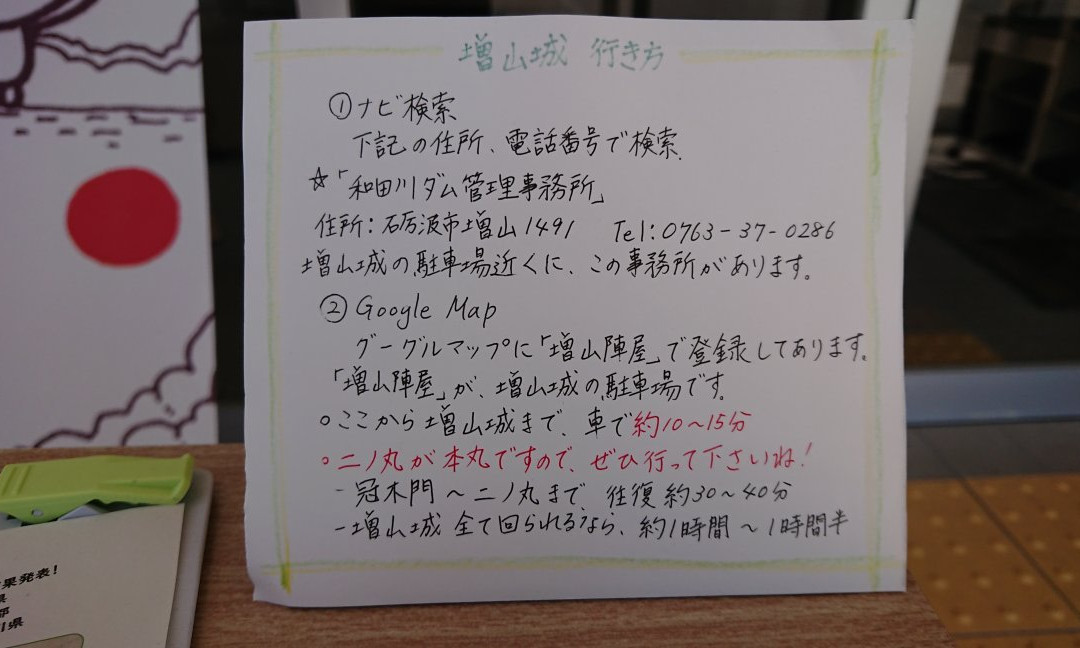 増山城 行き方
①ナビ検索
下記の住所、電話番号で検索
☆「和田川ダム管理事務所」
住所：砺波市増山1491 Tel：0763-37-0286
増山城の駐車場近くに、この事務所があります。
②Google Map
グーグルマップに「増山陣屋」で登録してあります。
「増山陣屋」が、増山城の駐車場です。
○ここから増山城まで、車で約10～15分
○二ノ丸が本丸ですので、ぜひ行って下さいね！
-冠木門～二ノ丸まで、往復約30～40分
-増山城全て回られるなら、約1時間～1時間半
果発表！
県
都
川県